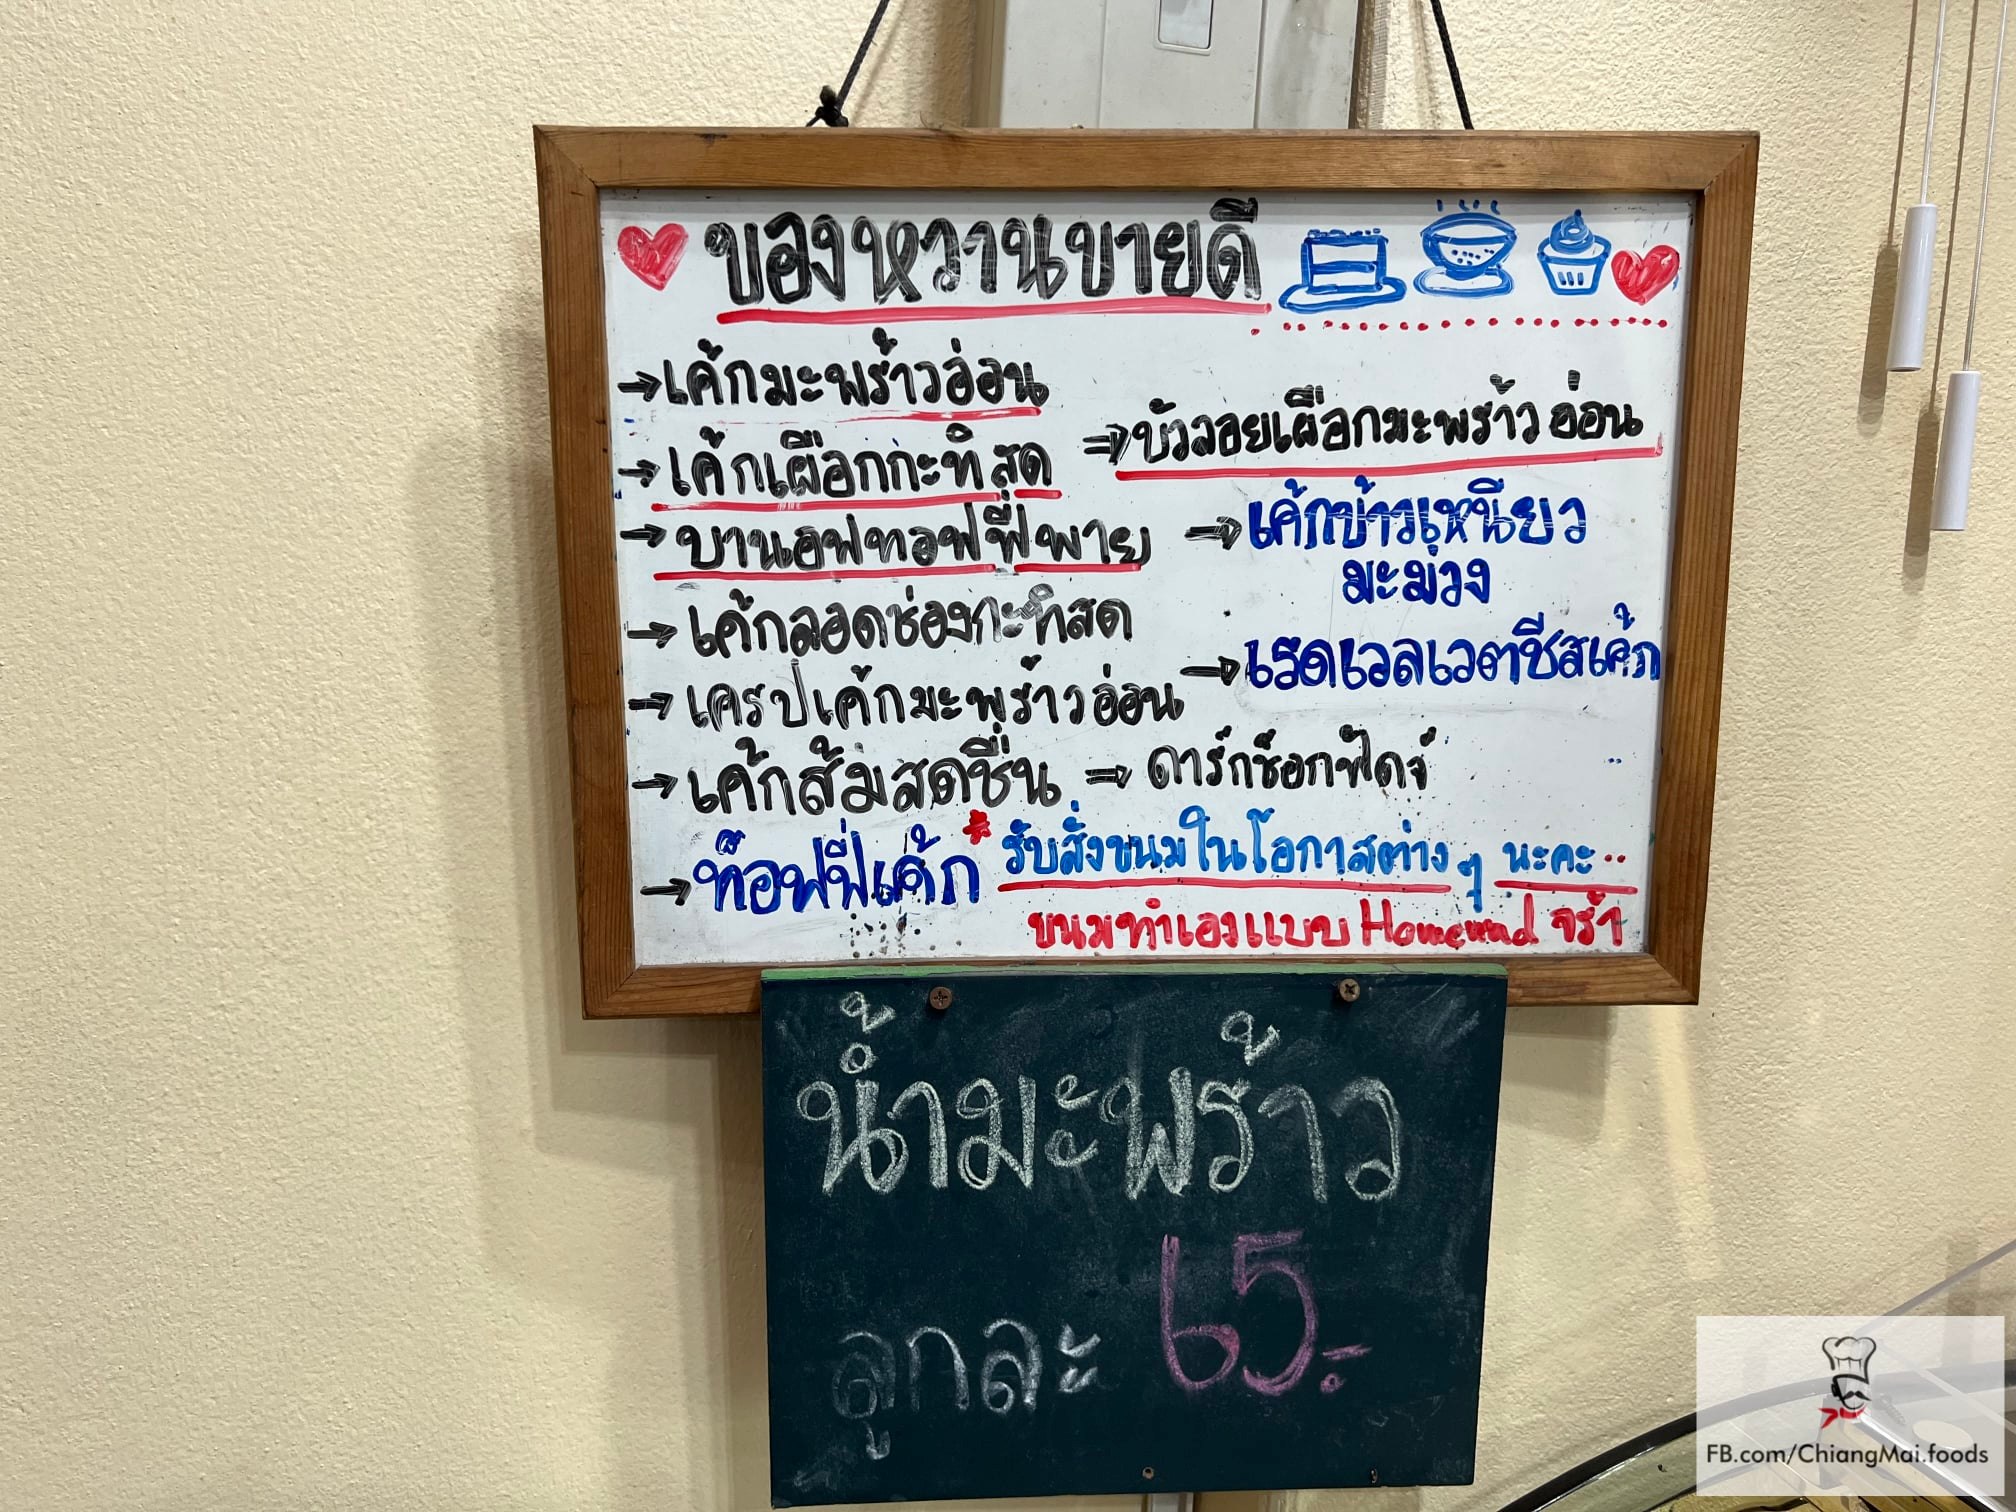 ของหวานขายดี
→เค้กมะพร้าวอ่อน
→เค้กเผือกกะทิสด
→บานอฟทอฟฟี่พาย
→เค้กลอดช่องกะทิสด
→เครปเค้กมะพร้าวอ่อน
→เค้กส้มสดชื่น
→ท๊อฟฟี่เค้ก
→บัวลอยเผือกมะพร้าวอ่อน
→เค้กข้าวเหนียว
มะม่วง
→เรดเวลเวตชีสเค้ก
→ดาร์กช็อกฟัดจ์
*รับสั่งขนมในโอกาสต่าง ๆ นะคะ..
ขนมทำเองแบบ Homemad จร้า
น้ำมะพร้าว
ลูกละ 65.-
FB.com/ChiangMai.foods